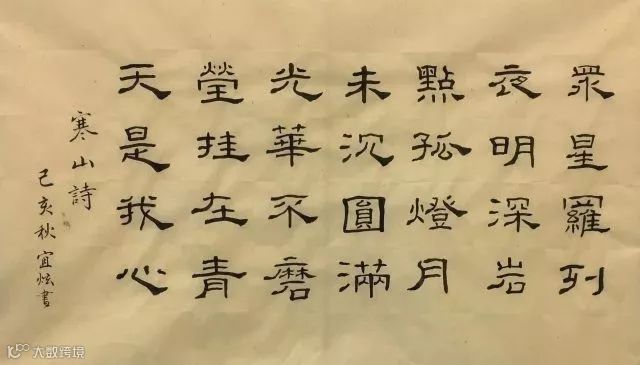 眾星羅列
夜明深岩
點孤燈月
未沉圓滿
光華不磨
瑩挂在青
天是我心
寒山詩
己亥秋宜炫書
大数跨境